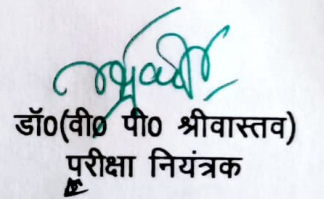 डॉ0(वी0 पी0 श्रीवास्तव)
परीक्षा नियंत्रक